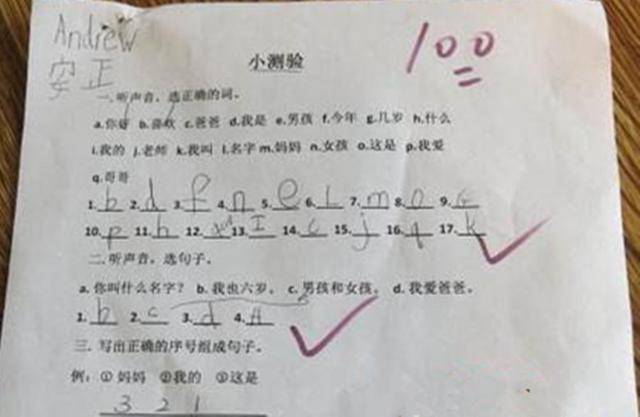 Andrew
安正
小测验
100
一.听声音，选正确的词。
a.你好 b.喜欢 c.爸爸 d.我是 e.男孩 f.今年 g.几岁 h.什么
i.我的 j.老师 k.我叫 l.名字 m.妈妈 n.女孩 o.这是 p.我爱
q.哥哥
1. b 2. d 3. f 4. n 5. e 6. L 7. m 8. o 9.
10. p 11. h 12. 13. I 14. c 15. j 16. q 17. k
二.听声音，选句子。
a. 你叫什么名字？ b. 我也六岁。 c. 男孩和女孩。 d. 我爱爸爸。
1. b 2. c 3. d 4. A
三. 写出正确的序号组成句子。
例：① 妈妈 ②我的 ③这是
3 2 1